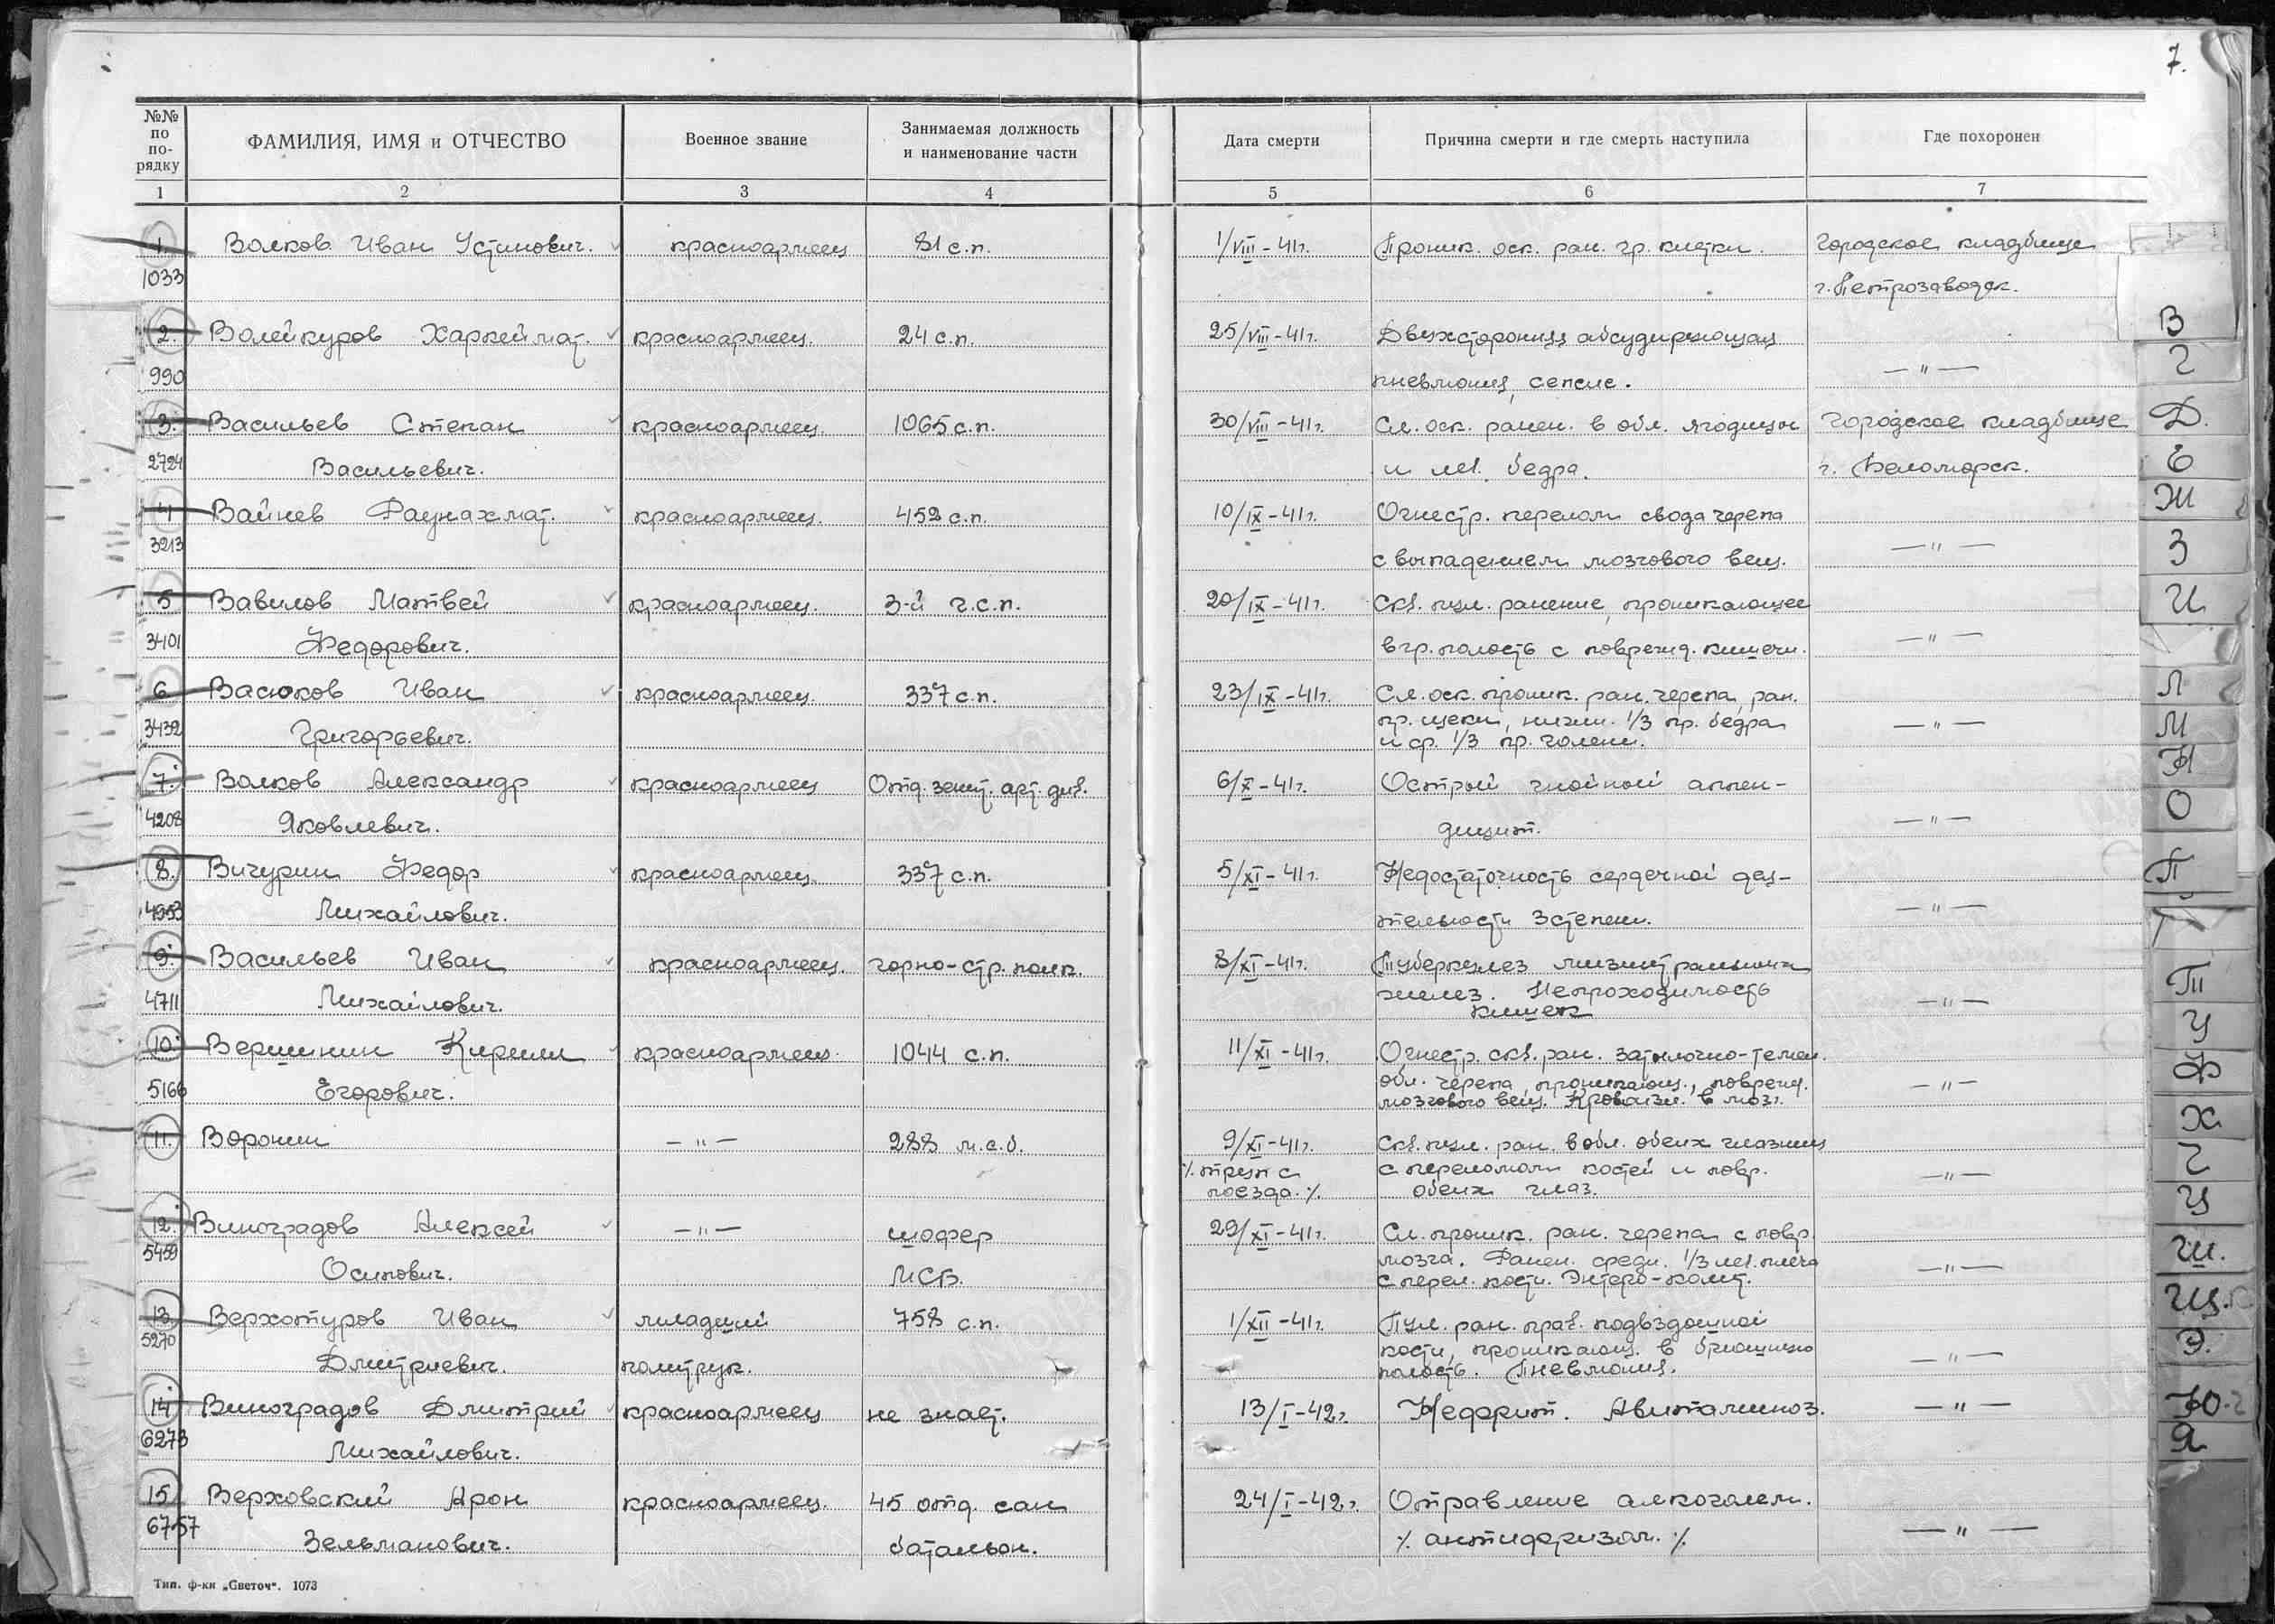 7.
№№ по по-рядку
ФАМИЛИЯ, ИМЯ и ОТЧЕСТВО
Военное звание
Занимаемая должность
и наименование части
Дата смерти
Причина смерти и где смерть наступила
Где похоронен
1 2 3 4 5 6 7
1. Волков Иван Устинович. красноармеец 81 с.п. 1/VIII-41г. Проник. оск. ран. гр. клетки. Городское кладбище
1033 г. Петрозаводск.
2. Волейкуров Харкеймат. красноармеец. 24 с.п. 25/VIII-41г. Двухсторонняя абсудирующая
990 пневмония, сепсис. —"—
3. Васильев Степан красноармеец. 1065 с.п. 30/VIII-41г. Сл. оск. ранен. в обл. ягодицы Городское кладбище
2724 Васильевич. и лев. бедра. г. Беломорск.
4 Вайнев Фаунахмат. красноармеец. 452 с.п. 10/IX-41г. Огнестр. перелом свода черепа
3213 с выпадением мозгового вещ. —"—
5 Вавилов Матвей красноармеец. 3-й г.с.п. 20/IX-41г. Скв. пул. ранение, проникающее
3401 Федорович. в гр. полость с поврежд. кишечн. —"—
6 Васюков Иван красноармеец. 337 с.п. 23/IX-41г. Сл. оск. проник. ран. черепа, ран.
3432 Григорьевич. пр. щеки, нижн. 1/3 пр. бедра —"—
и ср. 1/3 пр. голени.
7. Волков Александр красноармеец Отд. зенит. арт. див. 6/X-41г. Острый гнойный аппен-
4208 Яковлевич. дицит. —"—
8. Вичурин Федор красноармеец. 337 с.п. 5/XI-41г. Недостаточность сердечной дея-
Михайлович. тельности 3 степени. —"—
9. Васильев Иван красноармеец. горно-стр. полк. 8/XI-41г. Туберкулез мизинтральных
4711 Михайлович. желез. Непроходимость —"—
кишек
10. Вершинин Кирилл красноармеец. 1044 с.п. 11/XI-41г. Огнестр. скв. ран. затылочно-темен.
5166 Егорович. обл. черепа, проникающ., поврежд. —"—
мозгового вещ. Кровоизл. в мозг.
11. Воронин —"— 288 м.с.б. 9/XI-41г. Скв. пул. ран. в обл. обеих глазниц
٪ труп с с переломом костей и повр. —"—
поезда. ٪ обеих глаз.
12. Виноградов Алексей —"— шофер 29/XI-41г. Сл. проник. ран. черепа с повр.
5459 Осипович. МСБ. мозга. Ранен. средн. 1/3 лев. плеча —"—
с перел. кости. Энтеро-колит.
13. Верхотуров Иван младший 758 с.п. 1/XII-41г. Пул. ран. прав. подвздошной
5270 Дмитриевич. политрук. кости, проникающ. в брюшную —"—
полость. Пневмония.
14. Виноградов Дмитрий красноармеец не знает. 13/I-42г. Нефрит. Авитаминоз. —"—
6273 Михайлович.
15 Верховский Арон красноармеец. 45 отд. сан 24/I-42г. Отравление алкоголем.
6757 Зельманович. батальон. ٪ антифризом. ٪ —"—
Тип. ф-ки „Светоч". 1073
В
Г
Д.
Е
Ж
З
И
Л
М
Н
О
П
Т
У
Ф
Х
Ч
Ц
Ш.
Щ.
Э.
Ю.
Я